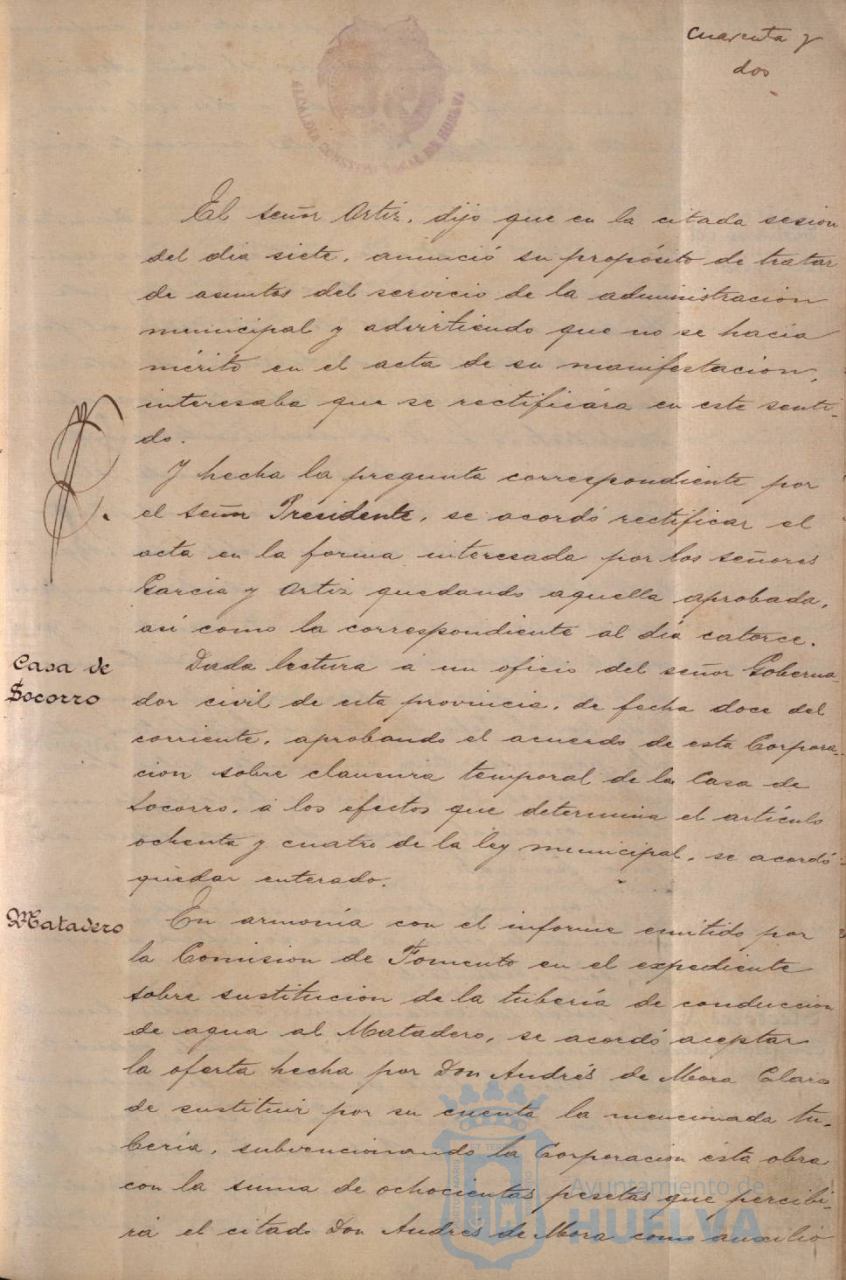 cuarenta y
dos
El señor Ortiz, dijo que en la citada sesion
del dia siete, anunció su propósito de tratar
de asuntos del servicio de la administracion
municipal y advirtiendo que no se hacia
mérito en el acta de su manifestacion,
interesaba que se rectificára en este senti-
do.
Y hecha la pregunta correspondiente por
el señor Presidente, se acordó rectificar el
acta en la forma interesada por los señores
Garcia y Ortiz quedando aquella aprobada,
asi como la correspondiente al dia catorce.
Casa de
Socorro
Dada lectura á un oficio del señor Goberna-
dor civil de esta provincia, de fecha doce del
corriente, aprobando el acuerdo de esta Corpora-
cion sobre clausura temporal de la Casa de
Socorro, á los efectos que determina el artículo
ochenta y cuatro de la ley municipal, se acordó
quedar enterado.
Matadero
En armonía con el informe emitido por
la Comision de Fomento en el expediente
sobre sustitucion de la tubería de conduccion
de agua al Matadero, se acordó aceptar
la oferta hecha por Don Andrés de Mora Claro
de sustituir por su cuenta la mencionada tu-
bería, subvencionando la Corporacion esta obra
con la suma de ochocientas pesetas que percibi-
rá el citado Don Andrés de Mora como auxilio
Ayuntamiento de
HUELVA